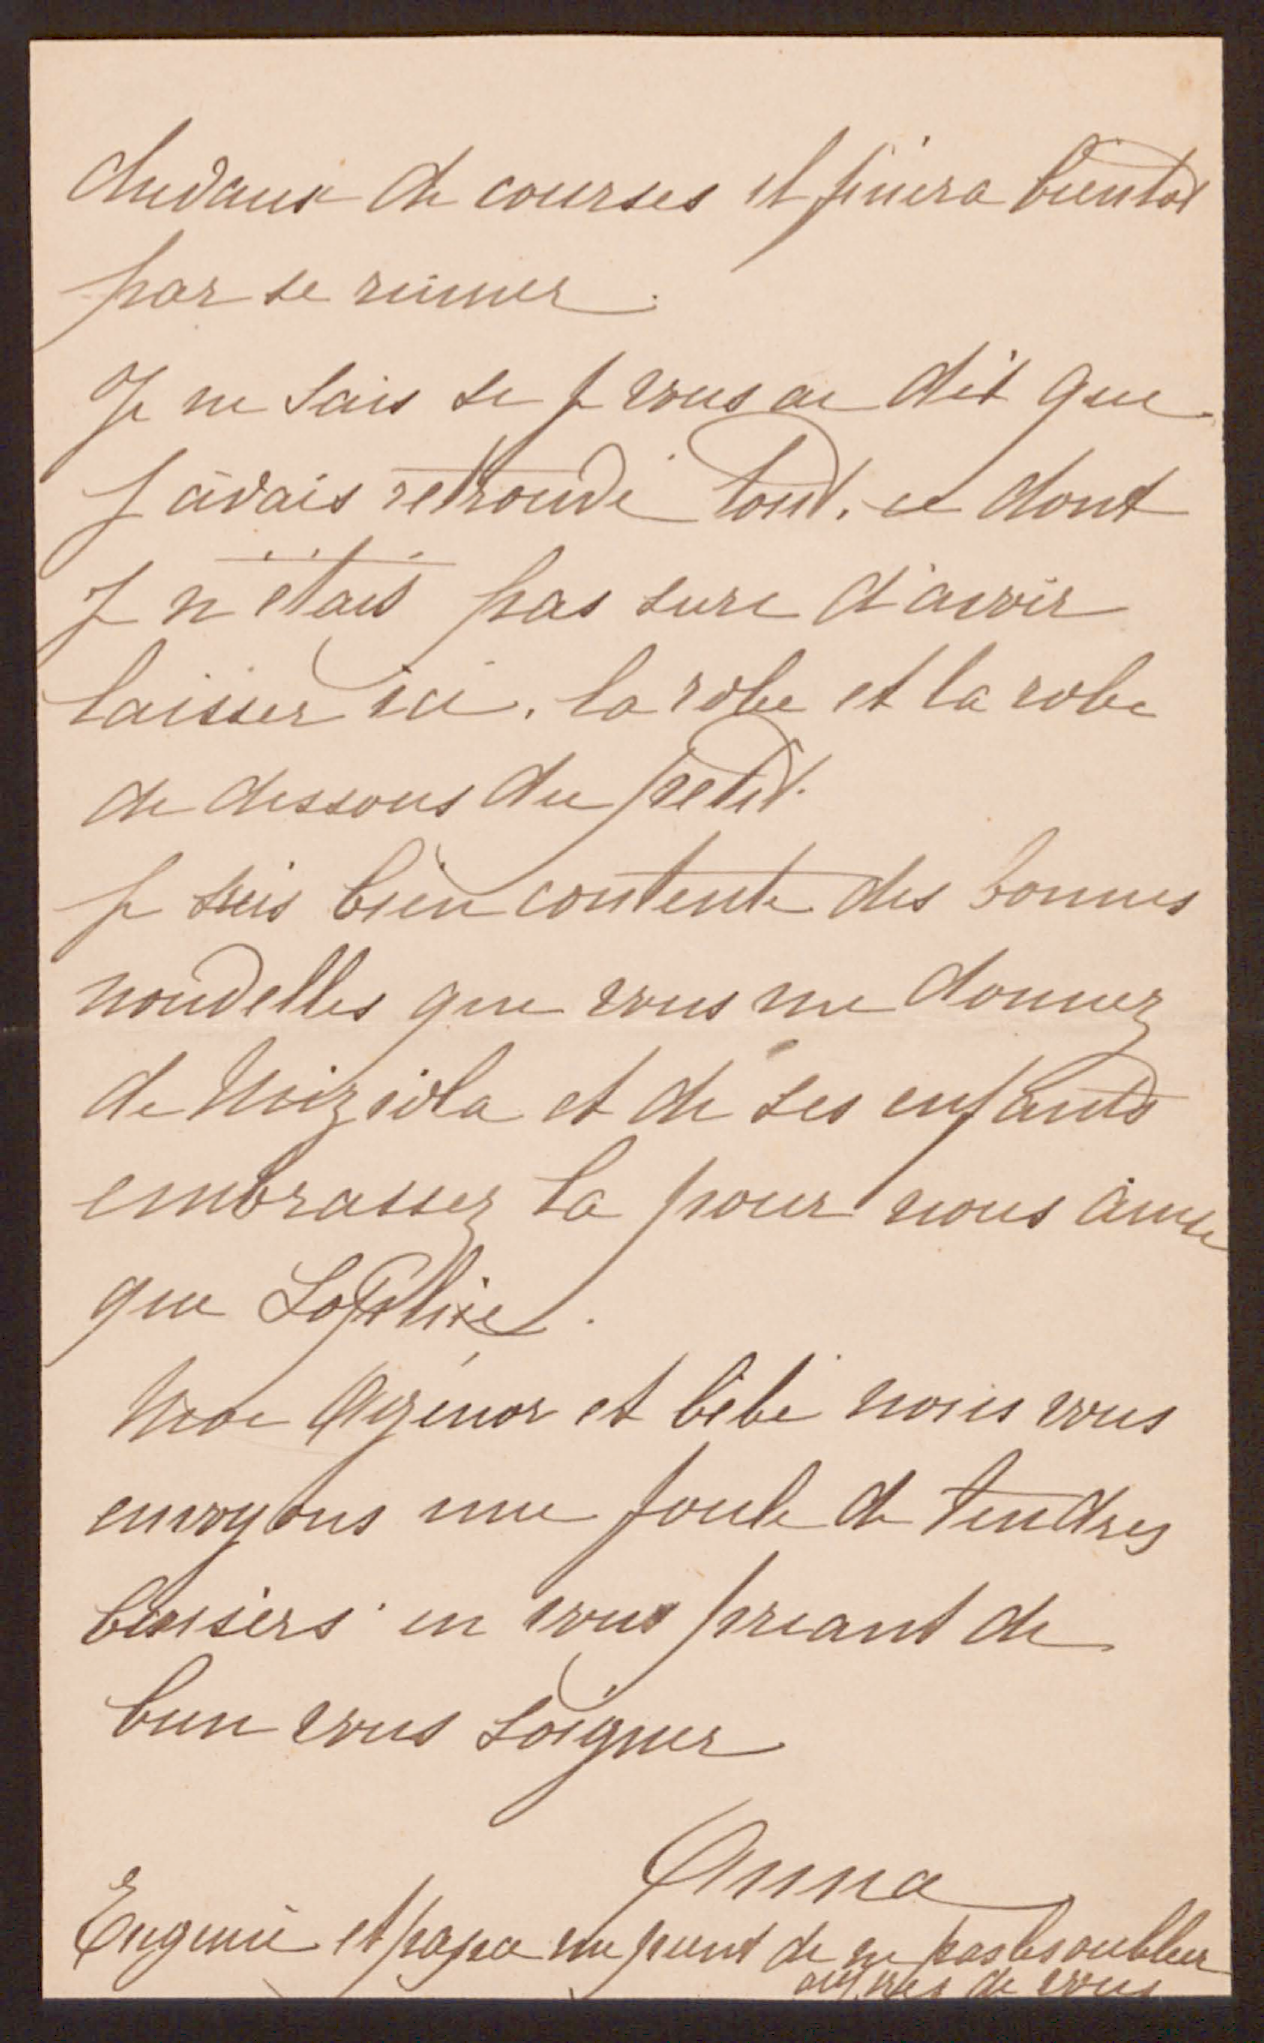 chevaux de courses il finira bientot
par se ruiner.
Je ne sais si je vous ai dit que
j'avais retrouvé tout. ce dont
je n'étais pas sure d'avoir
laisser ici. la robe et la robe
de dessous du petit.
je suis bien contente des bonnes
nouvelles que vous me donnez
de et de ses enfants
embrassez la pour nous ainsi
que
Moi Agénor et bébé nous vous
envoyons une foule de tendres
baisers en vous priant de
bien vous soigner
Anna
Eugenie et papa me prient de ne pas les oublier
auprès de vous